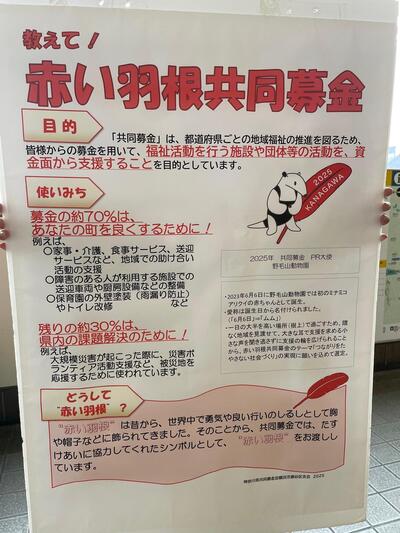 教えて!
赤い羽根共同募金
目的
「共同募金」は、都道府県ごとの地域福祉の推進を図るため、
皆様からの募金を用いて、福祉活動を行う施設や団体等の活動を、資
金面から支援することを目的としています。
使いみち
募金の約70%は、
あなたの町を良くするために!
例えば、
○家事・介護、食事サービス、送迎
サービスなど、地域での助け合い
活動の支援
○障害のある人が利用する施設での
送迎車両や厨房設備などの整備
○保育園の外壁塗装(雨漏り防止)
やトイレ改修 など
残りの約30%は、
県内の課題解決のために!
例えば、
大規模災害が起こった際に、災害ボ
ランティア活動支援など、被災地を
応援するために使われています。
2025
KANAGAWA
2025年 共同募金 PR大使
野毛山動物園
・2023年6月6日に野毛山動物園では初のミナミコ
アリクイの赤ちゃんとして誕生。
・愛称は誕生日から名付けられました。
(「6月6日」⇒「ムム」)
・一日の大半を高い場所(樹上)で過ごすため、隈
なく地域を見渡せて、大きな耳で支援を求める小
さな声を聞き逃さずに支援の輪を広げられること
から、赤い羽根共同募金のテーマ「つながりをた
やさない社会づくり」の実現に願いを込めて選定。
どうして
"赤い羽根" ?
"赤い羽根" は昔から、世界中で勇気や良い行いのしるしとして胸
や帽子などに飾られてきました。そのことから、共同募金では、たす
けあいに協力してくれたシンボルとして、 "赤い羽根" をお渡しし
ています。
2025